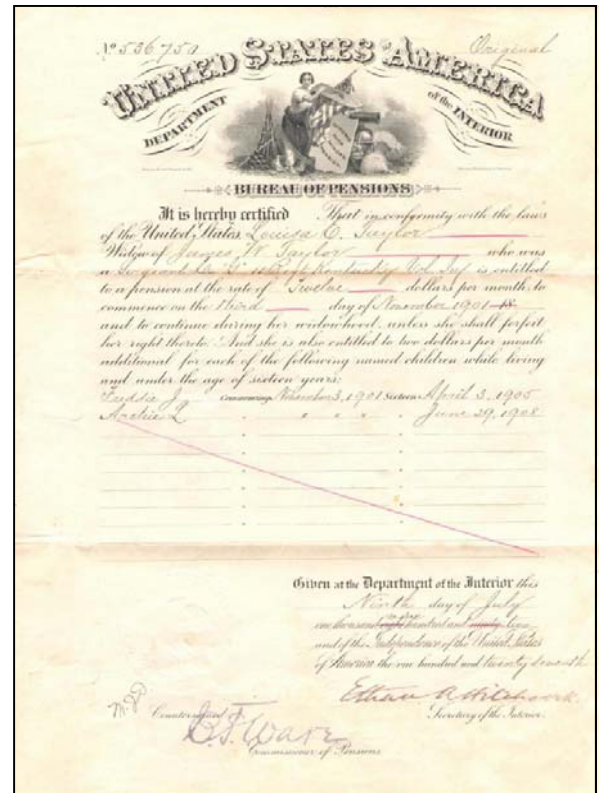 No 536750 Original
UNITED STATES OF AMERICA
DEPARTMENT of the INTERIOR
BUREAU OF PENSIONS
It is hereby certified That in conformity with the laws
of the United States Louisa C. Taylor
Widow of James W. Taylor who was
a Sergeant Co. Kentucky Vol. Inf. is entitled
to a pension at the rate of Twelve dollars per month, to
commence on the third day of November 1901
and to continue during her widowhood, unless she shall forfeit
her right thereto. And she is also entitled to two dollars per month
additional for each of the following named children while living
and under the age of sixteen years:
Freddie J. Commencing November 3, 1901 Sixteen April 3, 1905
Archie L " " " June 29, 1908
Given at the Department of the Interior this
Ninth day of July
one thousand nine hundred and two
and of the Independence of the United States
of America the one hundred and twenty seventh
Ethan A. Hitchcock.
Secretary of the Interior.
Countersigned
E. F. Ware
Commissioner of Pensions